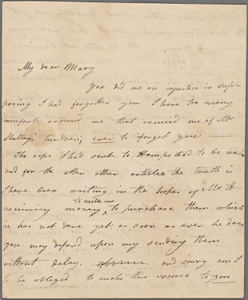 My dear Mary
You did me an injustice in sup-
posing I had forgotten you I have too many
comforts around me that remind me of Mr
Shelley's kindness ever to forget you
The caps I had sent to Hampstead to be wash
and for the other articles the truth is
I have been waiting in the hopes of Mr H
to enable me
receiving money to purchase them which
he has not done yet; as soon as ever he does
you may depend upon my sending them
without delay, and sorry am I
to be obliged to make this excuse to you